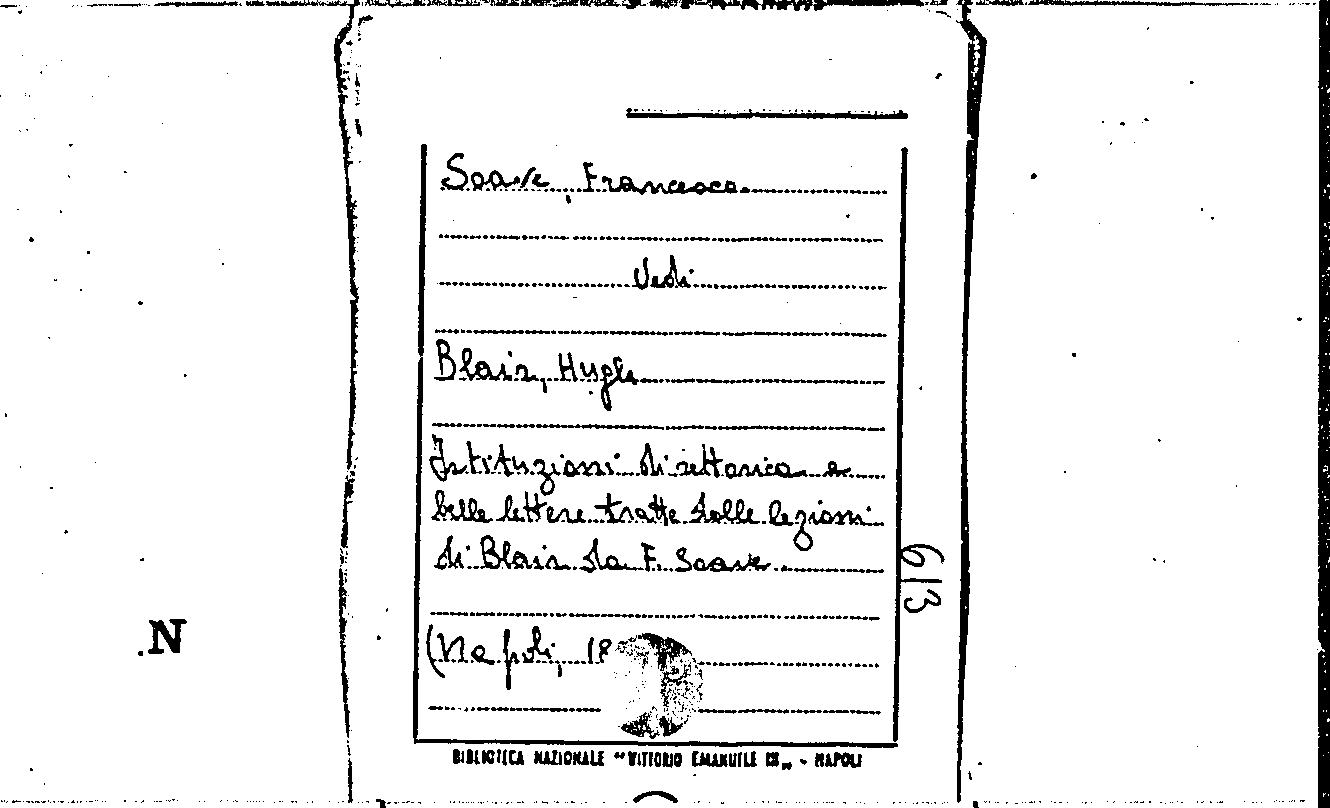 Soave, Francesco.
Vedi
Blair, Hugh
Istituzioni di rettorica e
belle lettere tratte dalle lezioni
di Blair da F. Soave
613
.N
(Napoli, 18
BIBLIOTECA NAZIONALE "VITTORIO EMANUELE III„ - NAPOLI